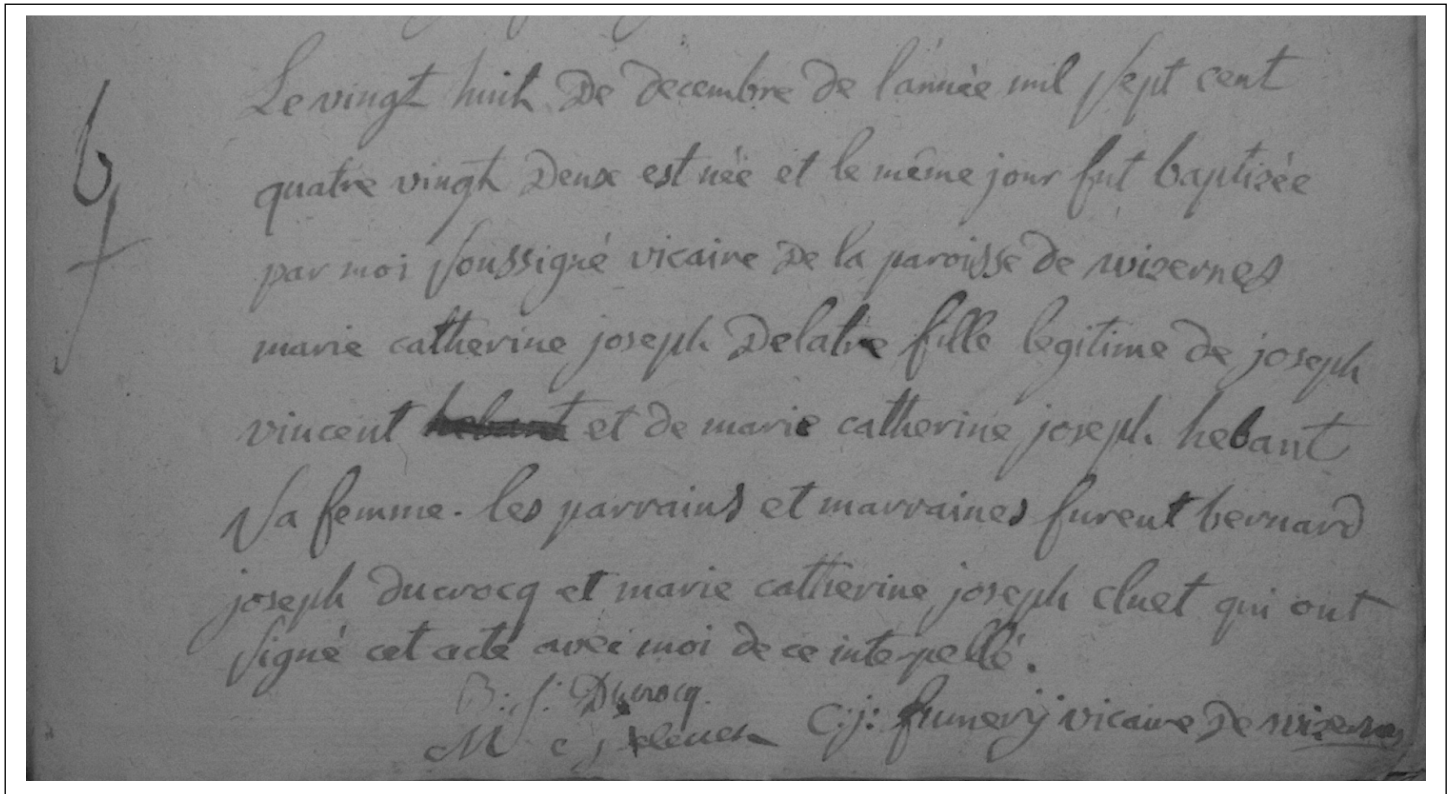 Le vingt huit De decembre de l'année mil sept cent
quatre vingt Deux est née et le même jour fut baptisée
par moi soussigné vicaire De la paroisse de wizernes
marie catherine joseph Delatre fille legitime de joseph
vincent hebant et de marie catherine joseph hebant
sa femme. les parrains et marraines furent bernard
joseph ducrocq et marie catherine joseph cluet qui ont
signé cet acte avec moi de ce interpellé.
B: j: Ducrocq
M c j C: j: funery vicaire De wizernes